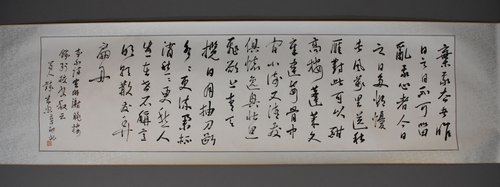 棄我去者昨
日之日不可留
亂我心者今日
之日多煩憂
長風萬里送秋
雁對此可以酣
高樓蓬萊文
章建安骨中
間小謝又清發
俱懷逸興壯思
飛欲上青天
攬日月抽刀斷
水水更流舉杯
消愁愁更愁人
生在世不稱意
明朝散髮弄
扁舟
李白詩宣州謝朓樓
餞別校書叔雲